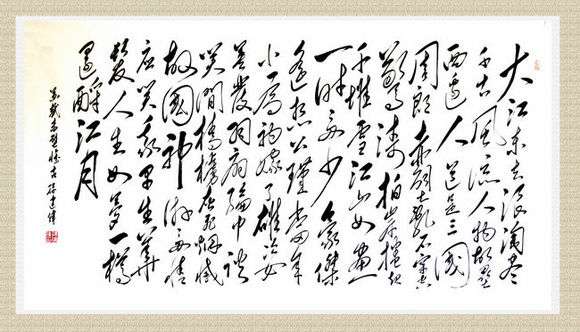 大江东去浪淘尽
千古风流人物故垒
西边人道是三国
周郎赤壁乱石穿空
惊涛拍岸捲起
千堆雪江山如画
一时多少豪傑
遥想公瑾当年
小乔初嫁了雄姿
英发羽扇纶巾谈
笑间樯橹灰飞烟灭
故国神游多情
应笑我早生华
髮人生如梦一樽
还酹江月
苏轼赤壁怀古